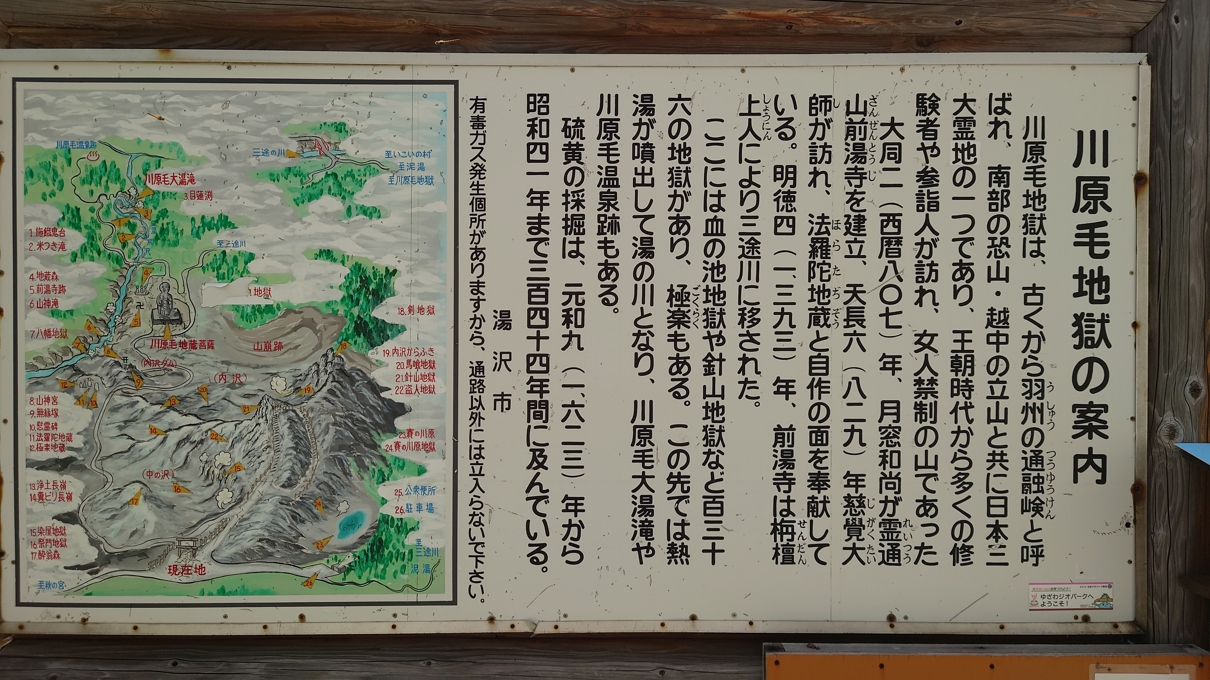 川原毛地獄の案内
川原毛地獄は、古くから羽州の通融嶮と呼
ばれ、南部の恐山・越中の立山と共に日本三
大霊地の一つであり、王朝時代から多くの修
験者や参詣人が訪れ、女人禁制の山であった
大同二（西暦八〇七）年、月窓和尚が霊通
山前湯寺を建立、天長六（八二九）年慈覺大
師が訪れ、法羅陀地蔵と自作の面を奉献して
いる。明徳四（一三九三）年、前湯寺は栴檀
上人により三途川に移された。
ここには血の池地獄や針山地獄など百三十
六の地獄があり、極楽もある。この先では熱
湯が噴出して湯の川となり、川原毛大湯滝や
川原毛温泉跡もある。
硫黄の採掘は、元和九（一六二三）年から
昭和四一年まで三百四十四年間に及んでいる。
湯沢市
有毒ガス発生個所がありますから、通路以外には立入らないで下さい。
川原毛温泉跡
川原毛大湯滝
3.目蓮渕
三途の川
至いこいの村
至泥湯
至川原毛地獄
1.施餓鬼台
2.米つき滝
至三途川
4.地蔵森
5.前湯寺跡
6.山神滝
7.八幡地獄
地獄
18.剣地獄
川原毛地蔵菩薩
山崩跡
(内沢ダム)
(内沢)
19.内沢からふき
20.馬喰地獄
21.針山地獄
22.盗人地獄
8.山神宮
9.無縁塚
10.慰霊碑
11.法羅陀地蔵
12.極楽地蔵
23.賽の川原
24.賽の川原地獄
(中の沢)
13.浄土長嶺
14.糞ビリ長嶺
25.公衆便所
26.駐車場
15.染屋地獄
17.酔翁森
至三途川
泥湯
現在地
至秋の宮
ゆざわジオパークへ
ようこそ！